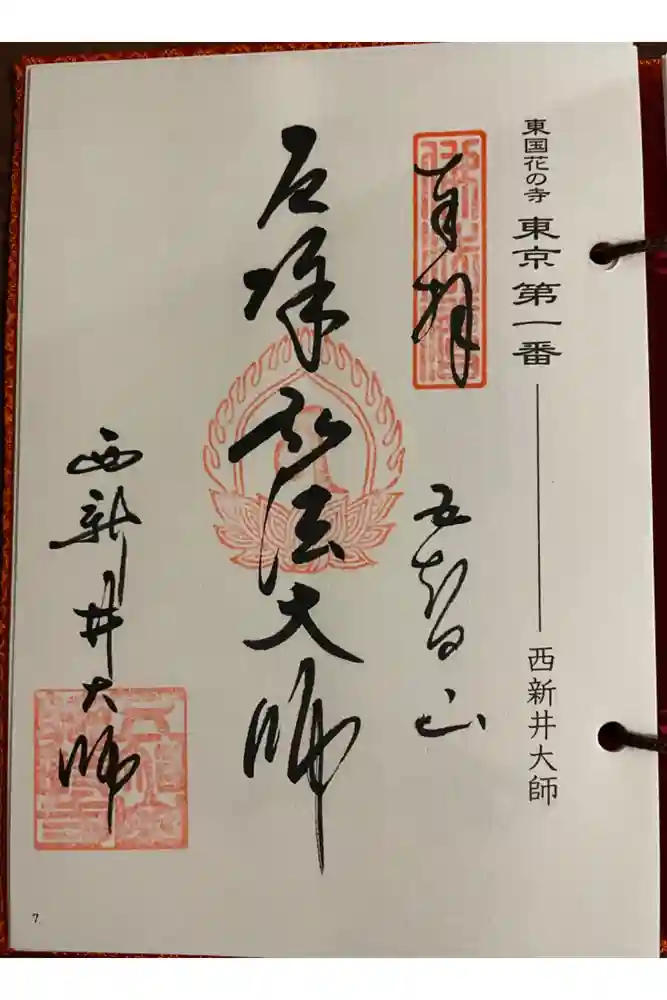 東国花の寺 東京第一番 ── 西新井大師
奉拝 五智山
厄除弘法大師
西新井大師
7